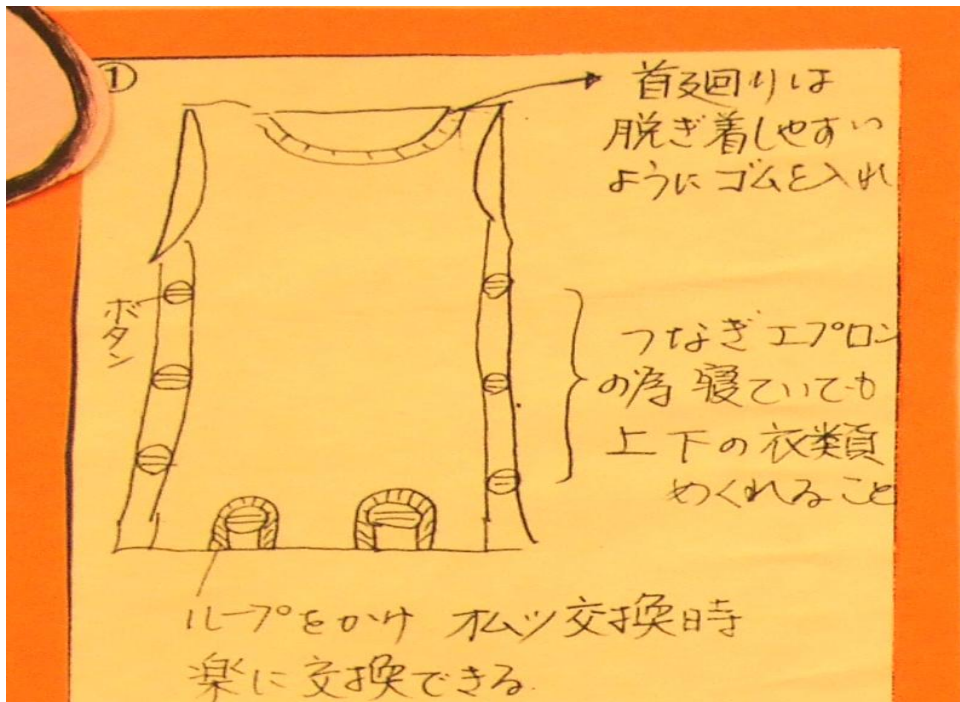 ①
首廻りは
脱ぎ着しやすい
ようにゴムを入れ
ボタン
つなぎエプロン
の為 寝ていても
上下の衣類
めくれること
ループをかけ オムツ交換時
楽に交換できる